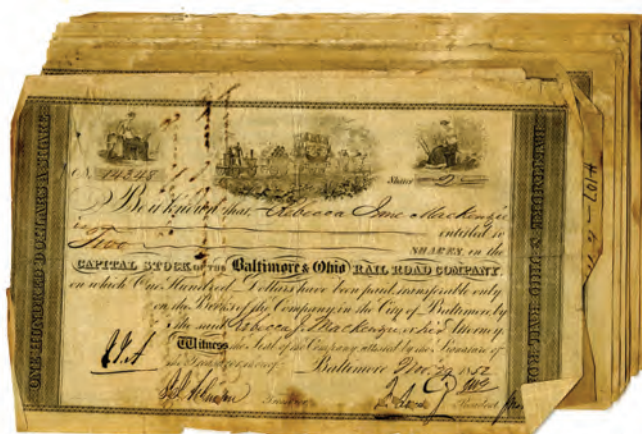 No. 14348 Shares 2
Be it known that, Rebecca Jane Mackenzie
entitled to
Two SHARES, in the
CAPITAL STOCK OF THE Baltimore & Ohio RAIL ROAD COMPANY,
on which One Hundred Dollars have been paid, transferable only
on the Books of the Company, in the City of Baltimore, by
the said Rebecca J. Mackenzie or her Attorney.
Witness the Seal of the Company, attested by the Signature of
the Treasurer Baltimore Nov. 1852
Treasurer President
ONE HUNDRED DOLLARS A SHARE
BALTIMORE & OHIO RAIL ROAD